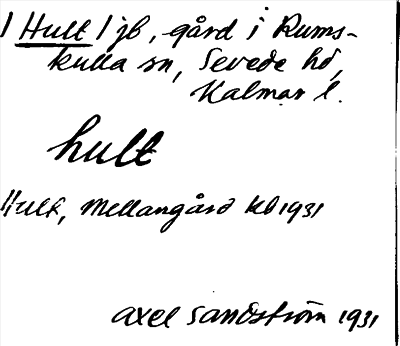 1 Hult 1 jb, gård i Rums-
kulla sn, Sevede hd,
Kalmar l.
hult
Hult, Mellangård kb 1931
Axel Sandström 1931